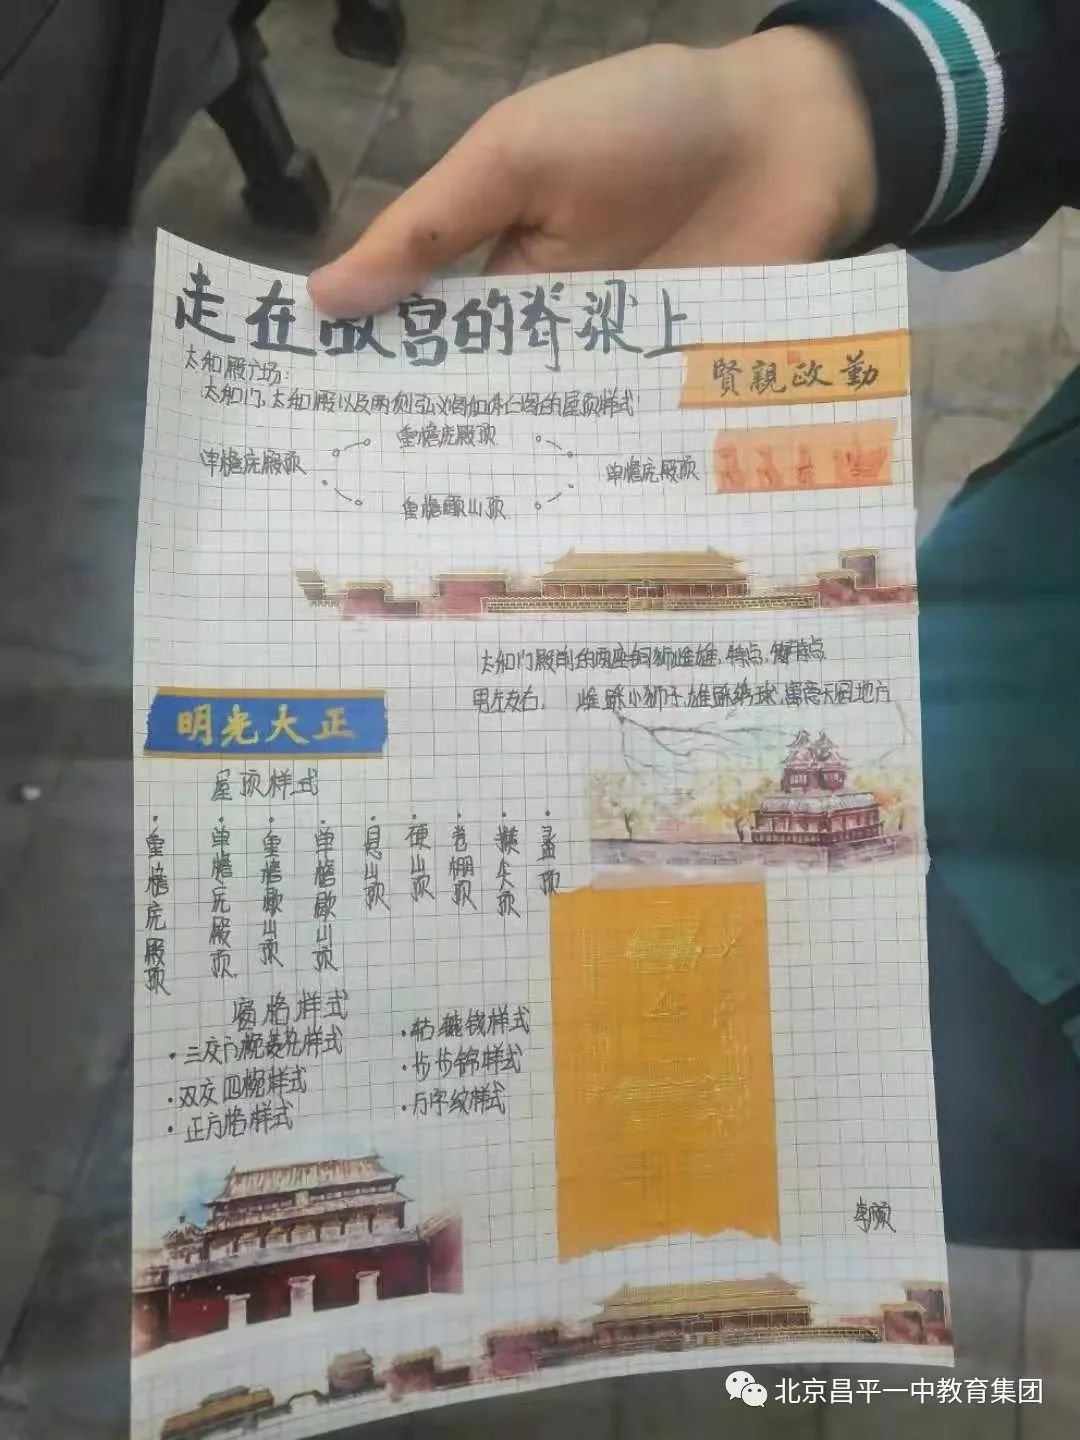 走在故宫的脊梁上
賢親政勤
太和殿广场:
太和门、太和殿以及两侧弘义阁和体仁阁的屋顶样式
重檐庑殿顶
单檐庑殿顶
单檐庑殿顶
重檐歇山顶
太和门殿前的两座铜狮雌雄,特点,
男左女右, 雌踩小狮子,雄踩绣球,寓意天圆地方
明光大正
屋顶样式
·重檐庑殿顶
·单檐庑殿顶
·重檐歇山顶
·单檐歇山顶
·悬山顶
·硬山顶
·卷棚顶
·攒尖顶
·盝顶
窗格样式
·三交六椀菱花样式
·双交四椀样式
·正方格样式
·轱辘钱样式
·步步锦样式
·万字纹样式
北京昌平一中教育集团